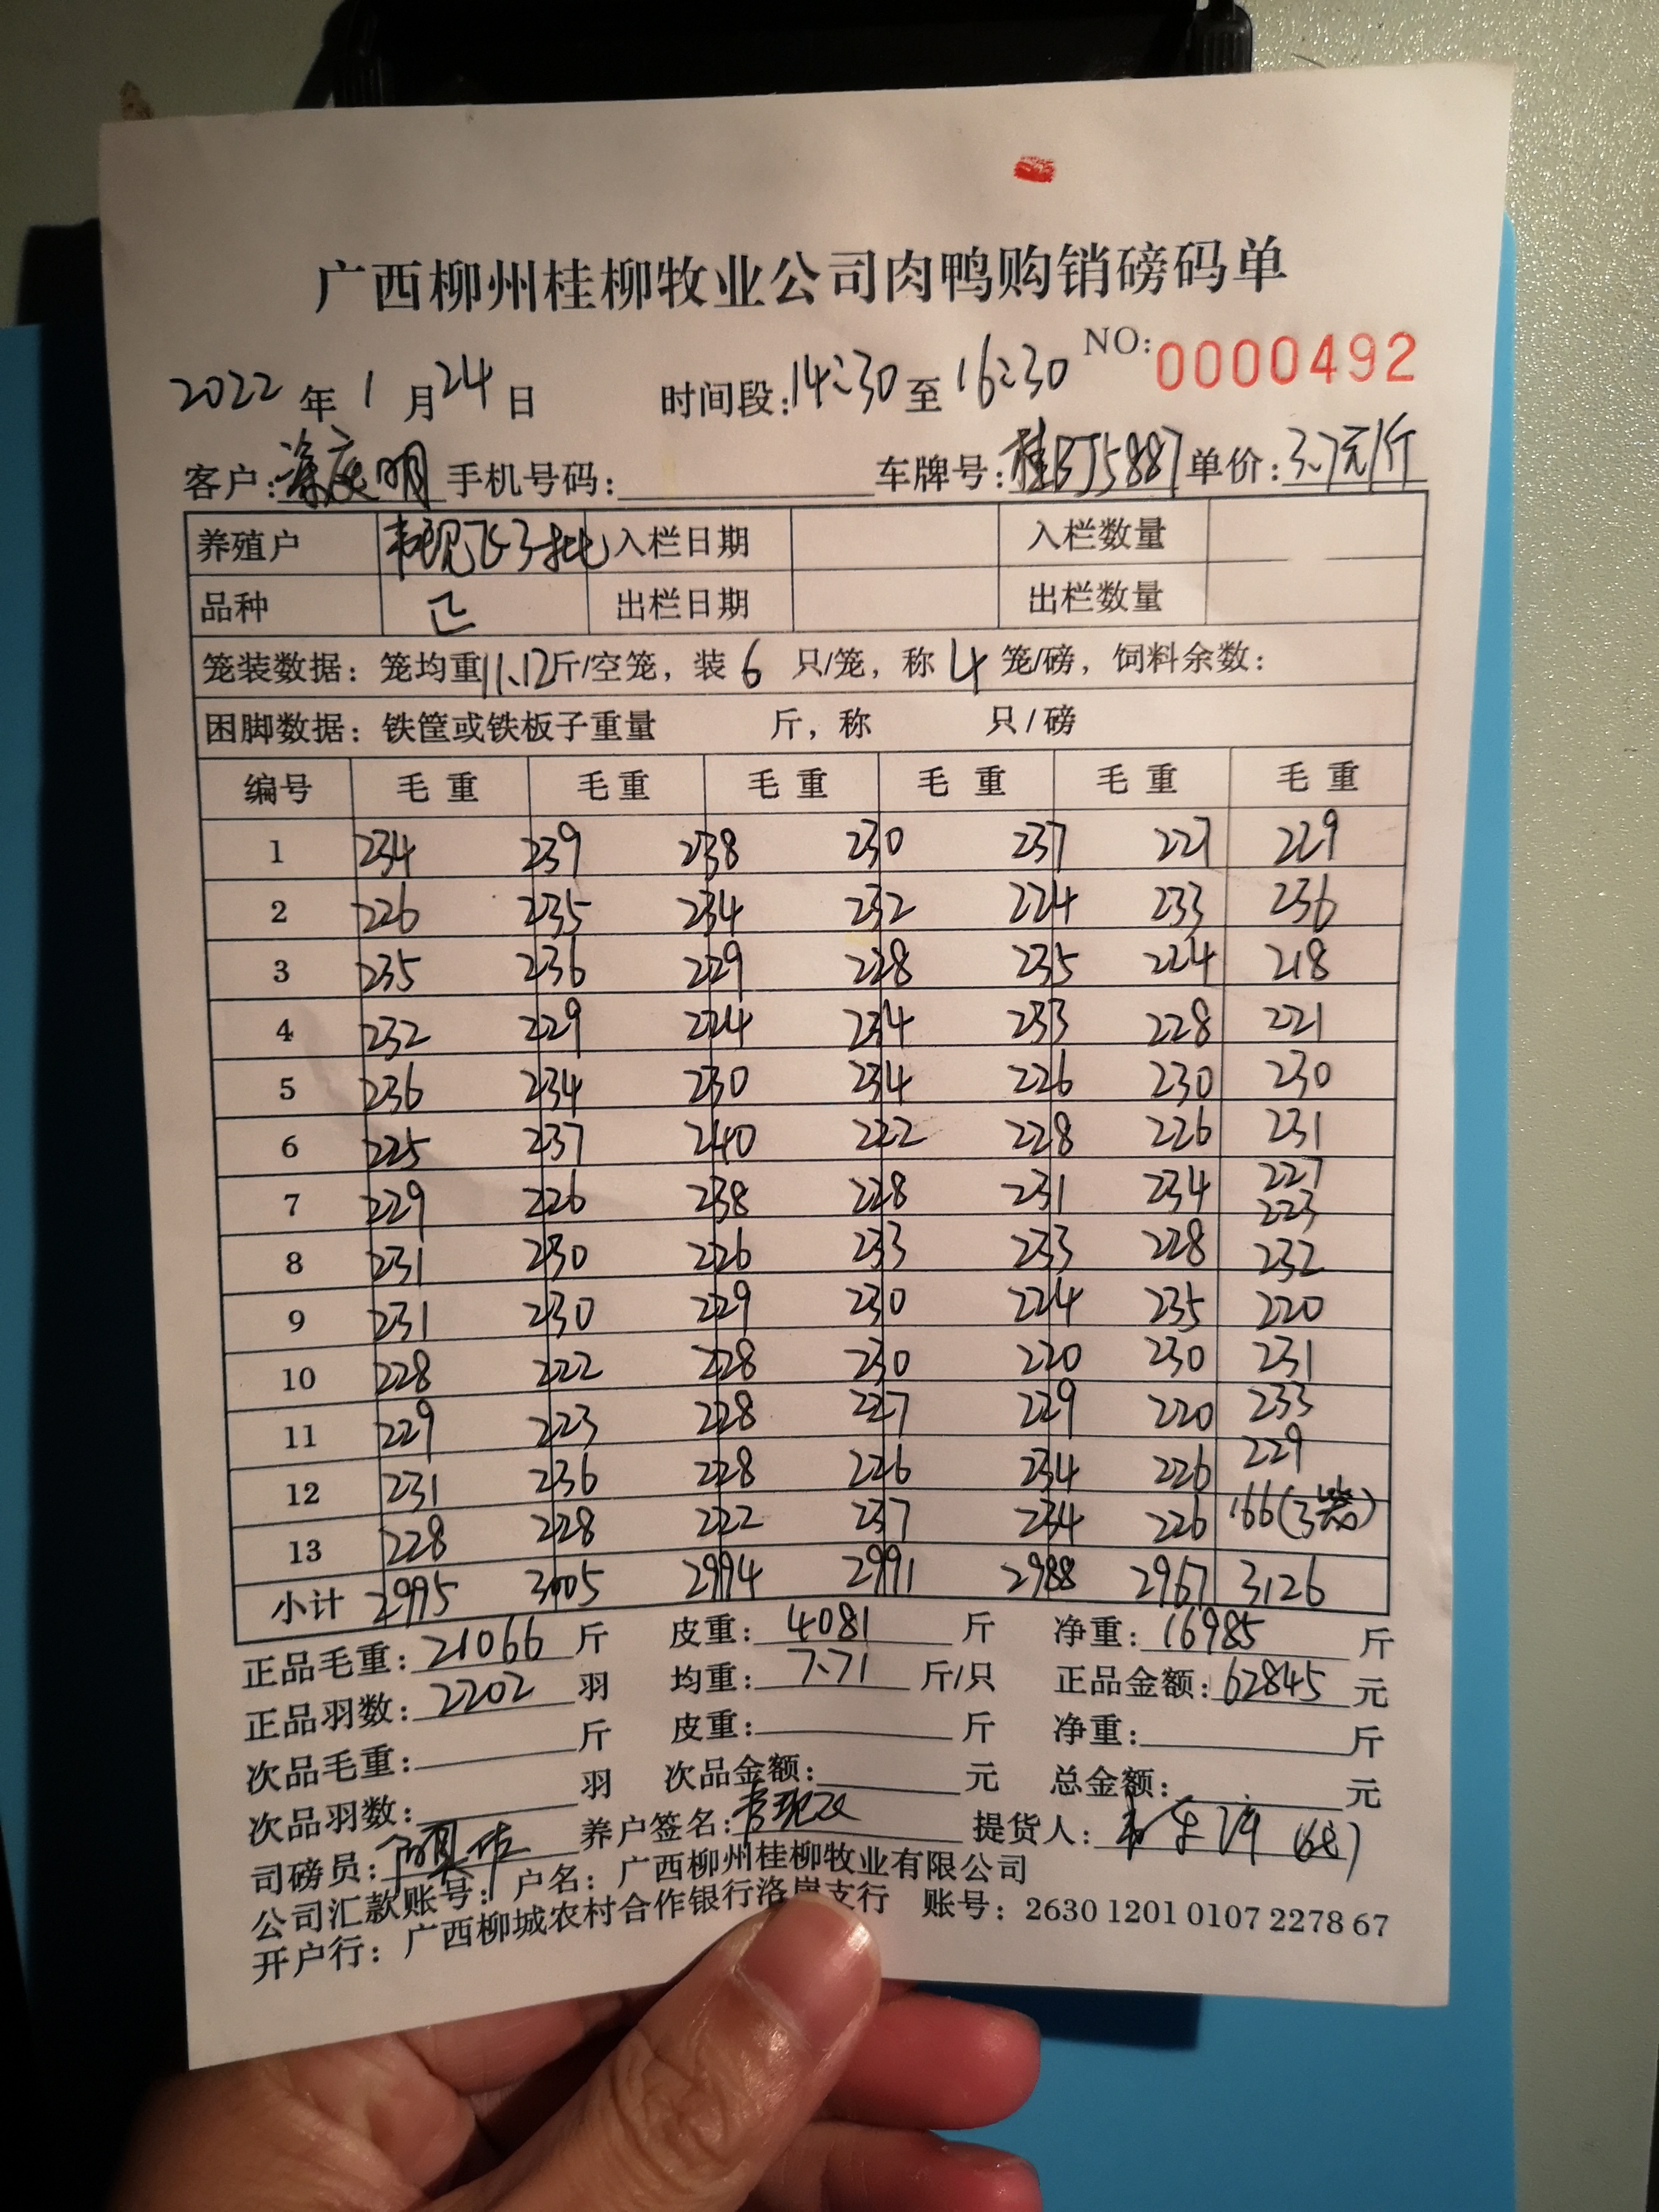 广西柳州桂柳牧业公司肉鸭购销磅码单
NO:0000492
2022年1月24日 时间段:14:30至16:30
客户:梁庆明 手机号码: 车牌号:桂BJ5887 单价:3.7元/斤
养殖户 韦现飞3批 入栏日期 入栏数量
品种 出栏日期 出栏数量
笼装数据:笼均重11.12斤/空笼,装6只/笼,称4笼/磅,饲料余数:
困脚数据:铁筐或铁板子重量 斤,称 只/磅
编号 毛重 毛重 毛重 毛重 毛重 毛重
1 234 239 238 230 237 227 229
2 226 235 234 232 224 233 236
3 235 236 229 228 235 224 218
4 232 229 224 234 233 228 221
5 236 234 230 234 226 230 230
6 225 237 240 222 228 226 231
7 229 226 238 228 231 234 227
223
8 231 230 226 233 233 228 232
9 231 230 229 230 224 235 220
10 228 222 228 230 220 230 231
11 229 223 228 227 229 220 233
12 231 236 228 226 234 226 229
13 228 228 222 237 234 226 166(3笼)
小计 2995 3005 2994 2991 2988 2967 3126
正品毛重:21066斤 皮重:4081斤 净重:16985斤
正品羽数:2202羽 均重:7.71斤/只 正品金额:62845元
次品毛重: 斤 皮重: 斤 净重: 斤
次品羽数: 羽 次品金额: 元 总金额: 元
司磅员: 养户签名:韦现飞 提货人:
公司汇款账号:户名:广西柳州桂柳牧业有限公司
开户行:广西柳城农村合作银行洛崖支行 账号:2630 1201 0107 2278 67